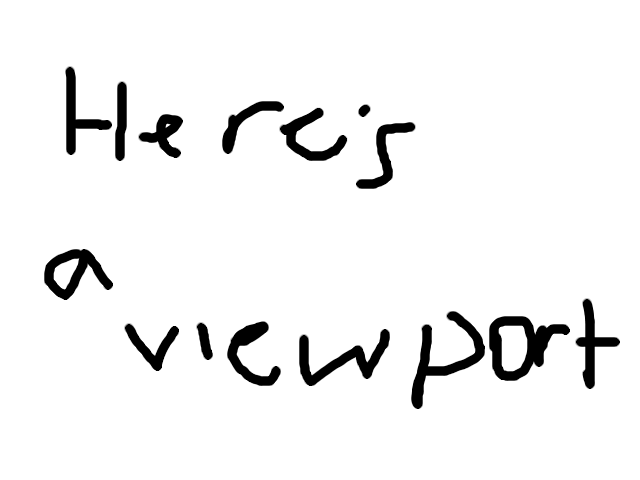 Here's
a
viewport